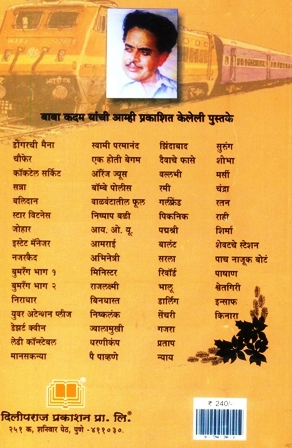 बाबा कदम यांची आम्ही प्रकाशित केलेली पुस्तके
डोंगरची मैना
चौफेर
कॉकटेल सर्किट
सत्रा
बलिदान
स्टार विटनेस
जोहार
इस्टेट मॅनेजर
नजरकैद
बुमरँग भाग १
बुमरँग भाग २
निराधार
युवर अटेन्शन प्लीज
डेझर्ट क्वीन
लेडी कॉन्स्टेबल
मानसकन्या
स्वामी परमानंद
एक होती बेगम
ऑरेंज ज्यूस
बॉम्बे पोलीस
वाळवंटातील फूल
निष्पाप बळी
आय. ओ. यू.
आमराई
अभिनेत्री
मिनिस्टर
राजलक्ष्मी
बिनधास्त
निष्कलंक
ज्वालामुखी
धरणीकंप
पै पाव्हणे
झिंदाबाद
दैवाचे फासे
वल्लभी
रमी
गर्लफ्रेंड
पिकनिक
पद्मश्री
बालंट
सरला
रिवॉर्ड
भालू
डार्लिंग
सेंचरी
गजरा
प्रताप
न्याय
सुरुंग
शोभा
मर्सी
चंद्रा
रतन
राही
शिर्मा
शेवटचे स्टेशन
पाच नाजूक बोटं
पाषाण
श्वेतगिरी
इन्साफ
किनारा
₹ 240/-
दिलीपराज प्रकाशन प्रा. लि.
२५१ क, शनिवार पेठ, पुणे - ४११०३०.